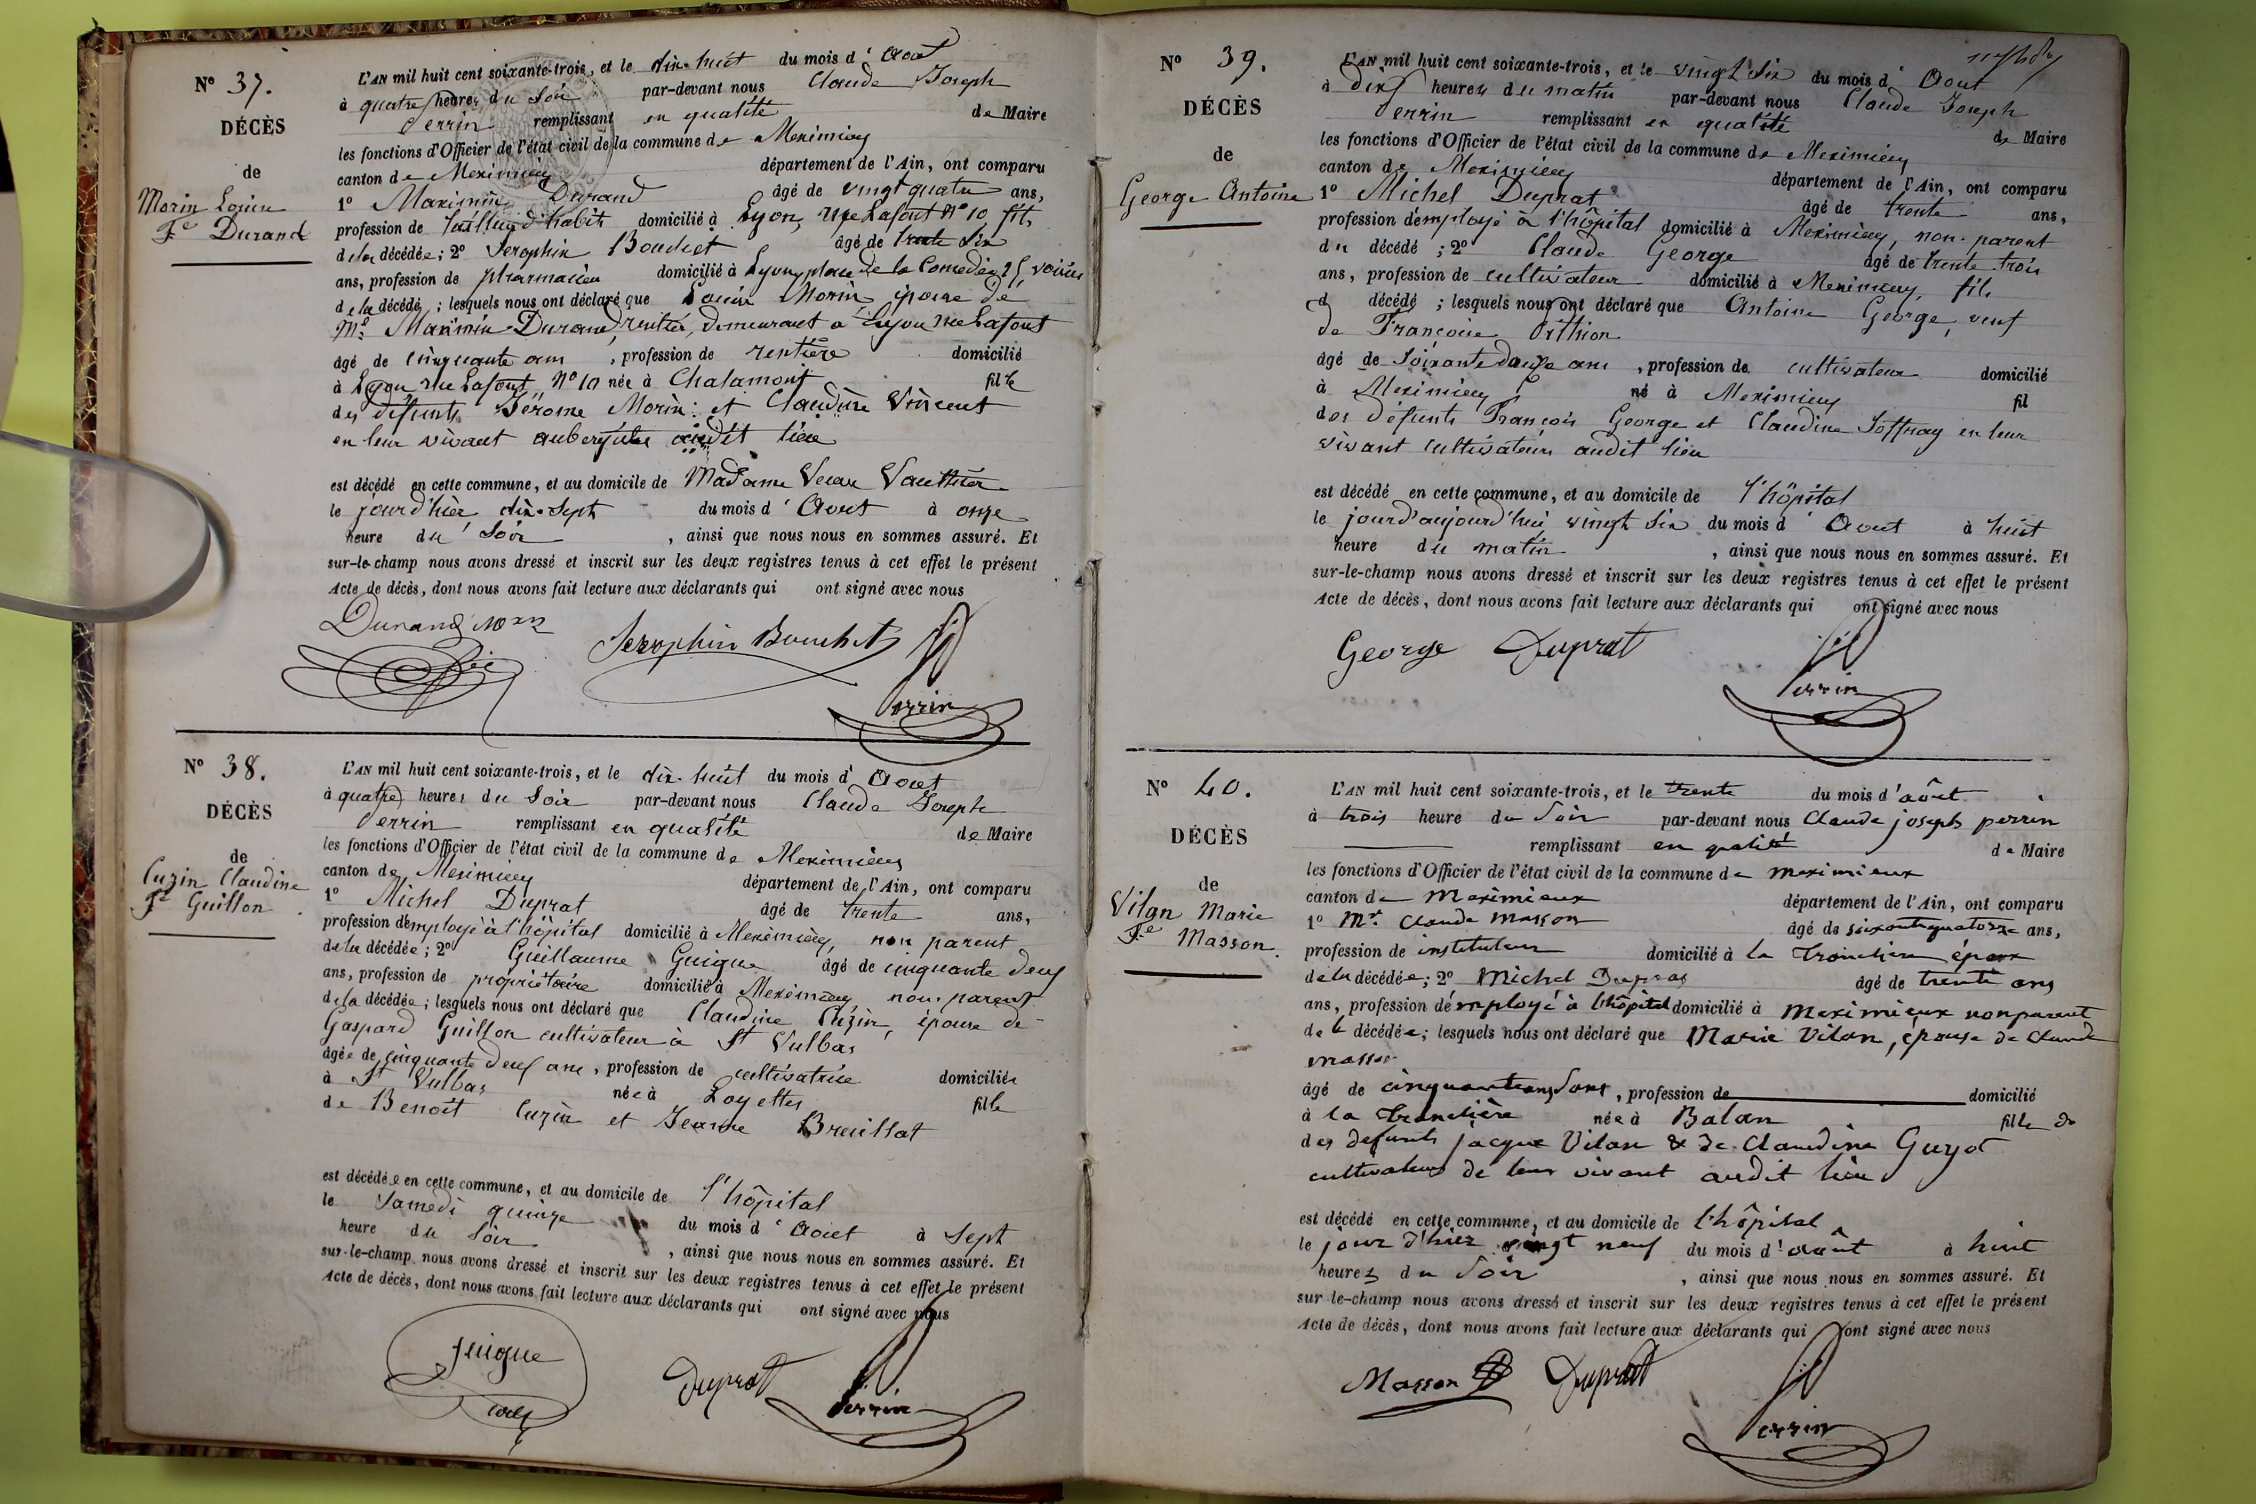 Nº 37.
DÉCÈS
de
Morin Louise
Fe Durand
L'AN mil huit cent soixante-trois, et le dix-huit du mois d'Aout
à quatre heures du Soir par-devant nous Claude Joseph
Perrin remplissant en qualité de Maire
les fonctions d'Officier de l'état civil de la commune de Meximieux
canton de Meximieux département de l'Ain, ont comparu
1º Maximin Durand âgé de vingt quatre ans,
profession de tailleur d'habits domicilié à Lyon, rue Lafont Nº 10 fils
de la décédée; 2º Seraphin Bouchet âgé de trente six
ans, profession de pharmacien domicilié à Lyon place de la Comedie 25 voisin
de la décédé; lesquels nous ont déclaré que Louise Morin épouse de
Mr Maximin Durand, rentier, demeurant à Lyon rue Lafont
âgé de cinquante ans, profession de rentière domicilié
à Lyon rue Lafont Nº 10 née à Chalamont fille
des défunts Jérome Morin et Claudine Vincent
en leur vivant aubergistes audit lieu
est décédé en cette commune, et au domicile de Madame Veuve Vauthier
le jour d'hier dix-sept du mois d'Aout à onze
heure du Soir, ainsi que nous nous en sommes assuré. Et
sur-le-champ nous avons dressé et inscrit sur les deux registres tenus à cet effet le présent
Acte de décès, dont nous avons fait lecture aux déclarants qui ont signé avec nous
Durand
Seraphin Bouchet
Perrin
Nº 38.
DÉCÈS
de
Cuzin Claudine
Fe Guillon
L'AN mil huit cent soixante-trois, et le dix-huit du mois d'Aout
à quatre heures du Soir par-devant nous Claude Joseph
Perrin remplissant en qualité de Maire
les fonctions d'Officier de l'état civil de la commune de Meximieux
canton de Meximieux département de l'Ain, ont comparu
1º Michel Duprat âgé de trente ans,
profession d'employé à l'hôpital domicilié à Meximieux, non parent
de la décédée; 2º Guillaume Guigue âgé de cinquante deux
ans, profession de propriétaire domicilié à Meximieux non parent
de la décédée; lesquels nous ont déclaré que Claudine Cuzin, épouse de
Gaspard Guillon cultivateur à St Vulbas
âgée de cinquante deux ans, profession de cultivatrice domiciliée
à St Vulbas née à Loyettes fille
de Benoît Cuzin et Jeanne Breuillat
est décédée en cette commune, et au domicile de l'hôpital
le Samedi quinze du mois d'Aout à Sept
heure du Soir, ainsi que nous nous en sommes assuré. Et
sur-le-champ nous avons dressé et inscrit sur les deux registres tenus à cet effet le présent
Acte de décès, dont nous avons fait lecture aux déclarants qui ont signé avec nous
Guigue
Duprat
Perrin
Nº 39.
DÉCÈS
de
George Antoine
L'AN mil huit cent soixante-trois, et le vingt six du mois d'Aout
à dix heures du matin par-devant nous Claude Joseph
Perrin remplissant en qualité de Maire
les fonctions d'Officier de l'état civil de la commune de Meximieux
canton de Meximieux département de l'Ain, ont comparu
1º Michel Duprat âgé de trente ans,
profession d'employé à l'hôpital domicilié à Meximieux, non parent
du décédé; 2º Claude George âgé de trente trois
ans, profession de cultivateur domicilié à Meximieux, fils
d décédé; lesquels nous ont déclaré que Antoine George, veuf
de Françoise Pithion
âgé de Soixante douze ans, profession de cultivateur domicilié
à Meximieux né à Meximieux fil
des défunts François George et Claudine Joffray en leur
vivant cultivateurs audit lieu
est décédé en cette commune, et au domicile de l'hôpital
le jourd'aujourd'hui vingt six du mois d'Aout à huit
heure du matin, ainsi que nous nous en sommes assuré. Et
sur-le-champ nous avons dressé et inscrit sur les deux registres tenus à cet effet le présent
Acte de décès, dont nous avons fait lecture aux déclarants qui ont signé avec nous
George Duprat
Perrin
Nº 40.
DÉCÈS
de
Vilan Marie
Fe Masson
L'AN mil huit cent soixante-trois, et le trente du mois d'aôut
à trois heure du Soir par-devant nous Claude joseph perrin
remplissant en qalité de Maire
les fonctions d'Officier de l'état civil de la commune de meximieux
canton de Meximieux département de l'Ain, ont comparu
1º Mr. Claude Masson âgé de soixantequatorze ans,
profession de instituteur domicilié à la tranclière époux
de la décédée; 2º Michel Dupras âgé de trente ans
ans, profession d'employé à l'hôpital domicilié à Meximieux non parent
de la décédée; lesquels nous ont déclaré que Marie Vilan, épouse de Claude
masson
âgé de, profession de domicilié
à la tranclière née à Balan fille de
des defunts jacque Vilan & de Claudine Guyot
cultivateurs de leur vivant audit lieu
est décédé en cette commune, et au domicile de l'hôpital
le jour d'hier vingt neuf du mois d'aôut à huit
heures du Soir, ainsi que nous nous en sommes assuré. Et
sur-le-champ nous avons dressé et inscrit sur les deux registres tenus à cet effet le présent
Acte de décès, dont nous avons fait lecture aux déclarants qui ont signé avec nous
Masson Duprat
Perrin